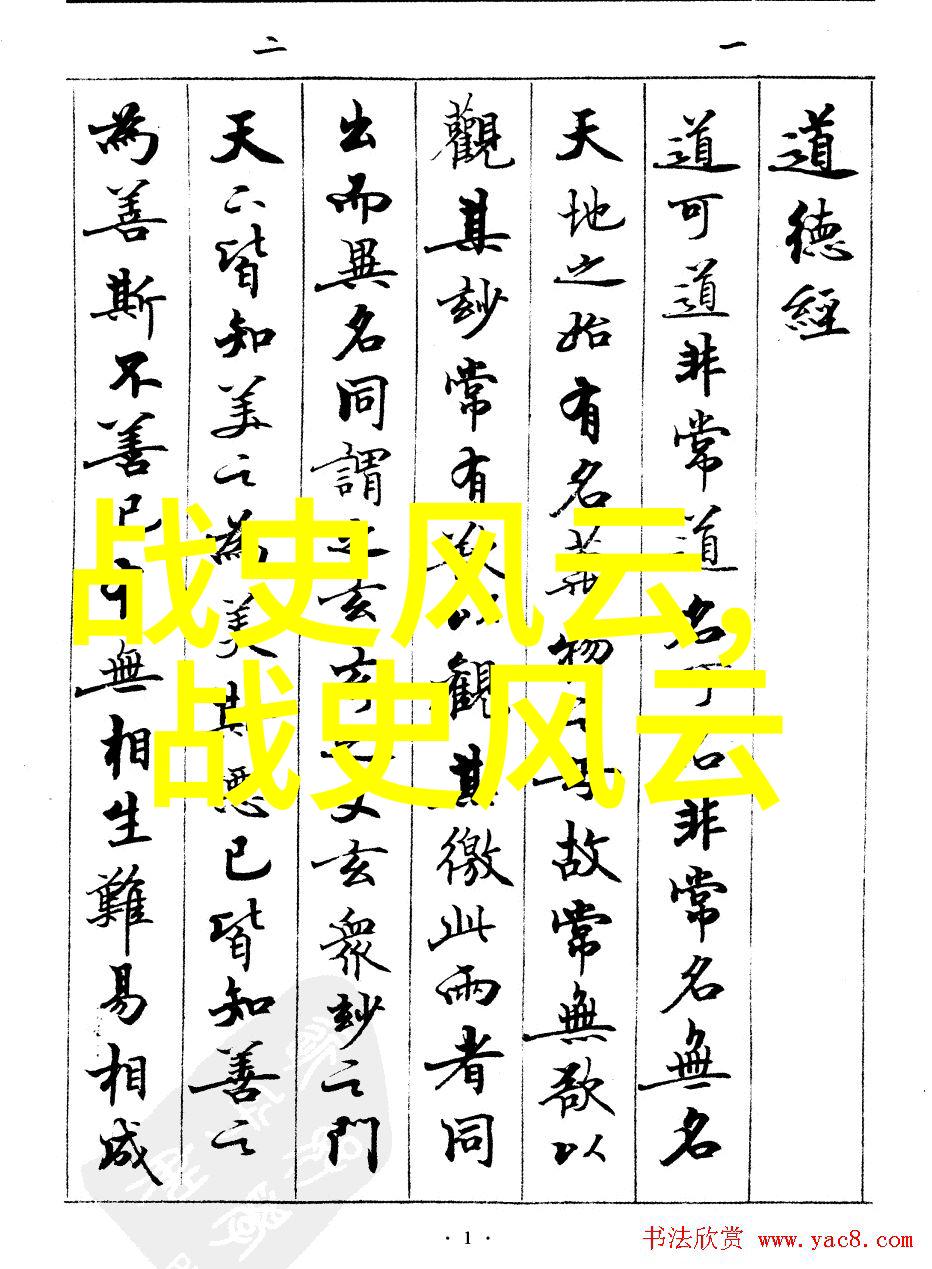 一
二
道德經
道可道非常道名可名非常名無名
天地之始有名萬物之母故常無欲以
觀其玅常有欲以觀其徼此兩者同
出而異名同謂之玄玄之又玄眾玅之門
天下皆知美之為美其惡已皆知善之
為善斯不善已有無相生難易相成
战史风云,
战史风云
· 1 ·
书法欣赏 www.yac8.com